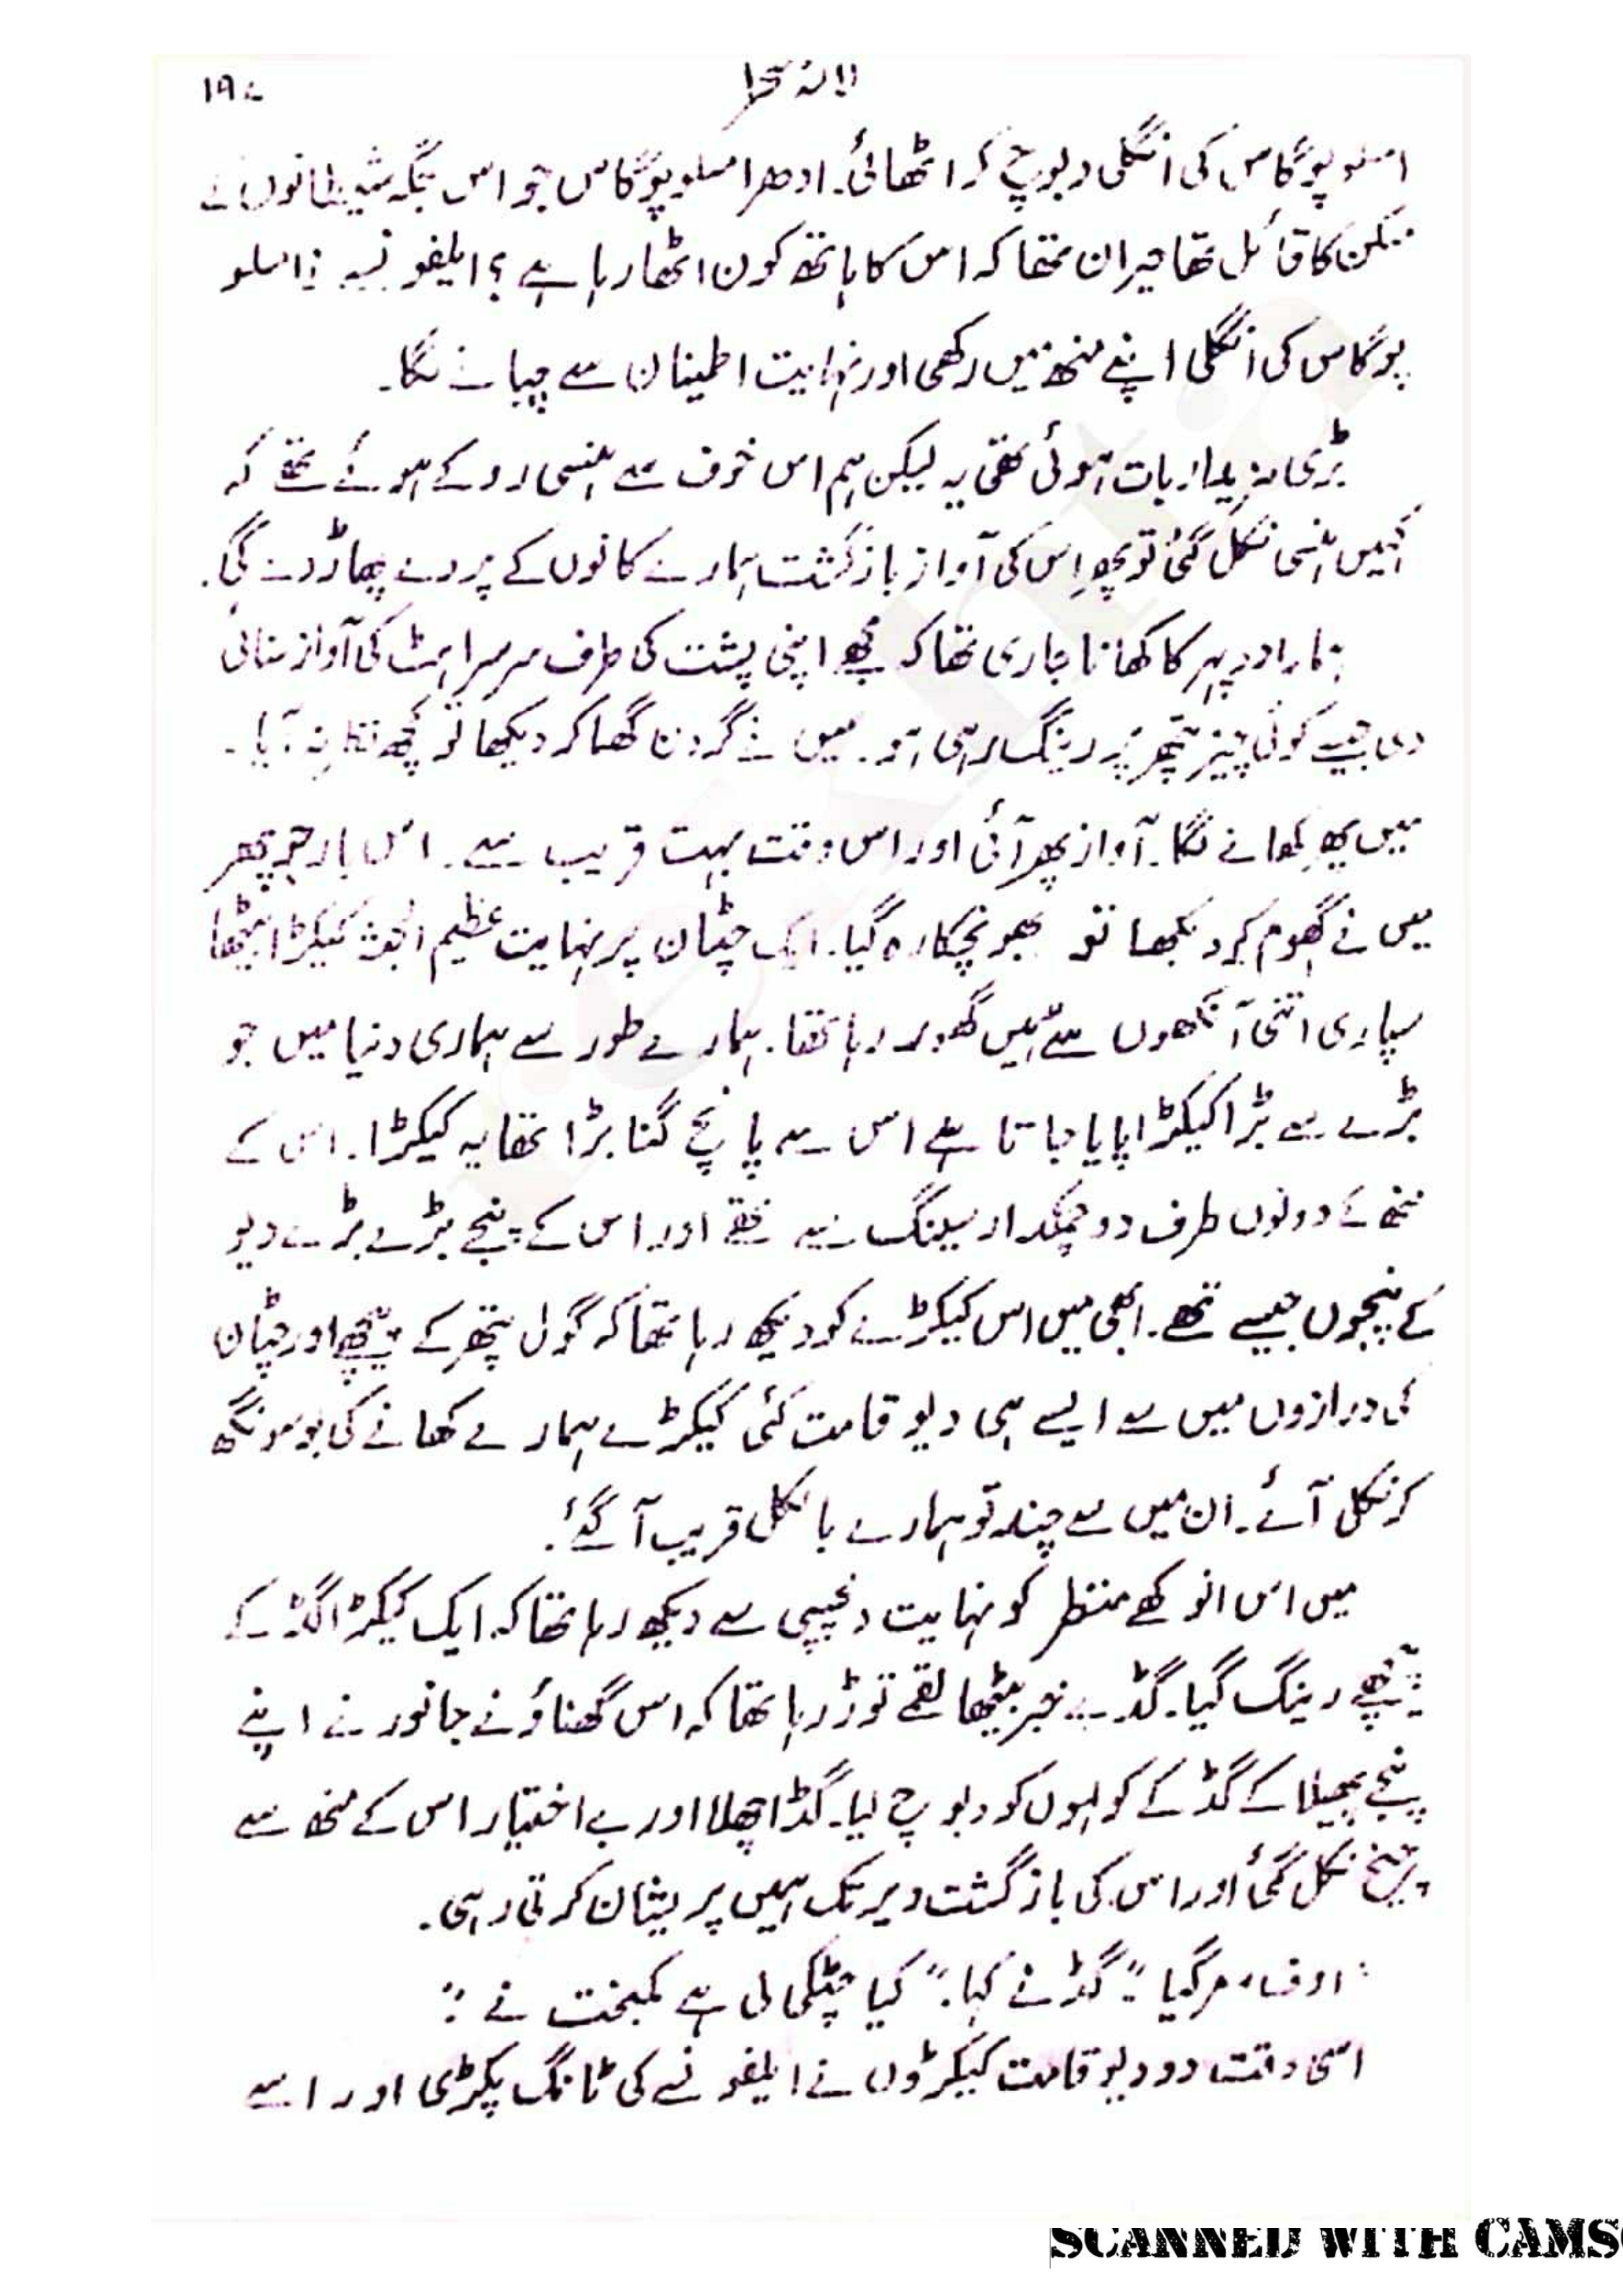 لالۂ صحرا ۱۹۷
امسلوپوگاس کی انگلی دبوچ کر اٹھائی۔ ادھر امسلوپوگاس جو اس جگہ شیطانوں کے
مسکن کا قائل تھا حیران تھا کہ اس کا ہاتھ کون اٹھا رہا ہے؟ ایلفونسے نے امسلو
پوگاس کی انگلی اپنے منھ میں رکھی اور نہایت اطمینان سے چبانے لگا۔
بڑی مزیدار بات ہوئی تھی یہ لیکن ہم اس خوف سے ہنسی روکے ہوئے تھے کہ
کہیں ہنسی نکل گئی تو پھر اس کی آواز بازگشت ہمارے کانوں کے پردے پھاڑ دے گی۔
ہمارا دوپہر کا کھانا جاری تھا کہ مجھے اپنی پشت کی طرف سرسراہٹ کی آواز سنائی
دی جیسے کوئی چیز پتھر پر رینگ رہی ہو۔ میں نے گردن گھما کر دیکھا تو کچھ نظر نہ آیا۔
میں پھر کھانے لگا۔ آواز پھر آئی اور اس وقت بہت قریب سے۔ اس بار جو پھر
میں نے گھوم کر دیکھا تو بھونچکا رہ گیا۔ ایک چٹان پر نہایت عظیم الجثہ کیکڑا بیٹھا
سپاری اتنی آنکھوں سے ہمیں گھور رہا تھا۔ ہمارے طور سے ہماری دنیا میں جو
بڑے سے بڑا کیکڑا پایا جاتا ہے اس سے پانچ گنا بڑا تھا یہ کیکڑا۔ اس کے
منھ کے دونوں طرف دو چمکدار سینگ سے تھے اور اس کے پنجے بڑے بڑے دیو
کے پنجوں جیسے تھے۔ ابھی میں اس کیکڑے کو دیکھ رہا تھا کہ گول پتھر کے پیچھے اور چٹان
کی درازوں میں سے ایسے ہی دیو قامت کئی کیکڑے ہمارے کھانے کی بو سونگھ
کر نکل آئے۔ ان میں سے چند تو ہمارے بالکل قریب آ گئے۔
میں اس انوکھے منظر کو نہایت دلچسپی سے دیکھ رہا تھا کہ ایک کیکڑا گڈ کے
پیچھے رینگ گیا۔ گڈ بے خبر بیٹھا لقمے توڑ رہا تھا کہ اس گھناؤنے جانور نے اپنے
پنجے پھیلا کے گڈ کے کولہوں کو دبوچ لیا۔ گڈ اچھلا اور بے اختیار اس کے منھ سے
چیخ نکل گئی اور اس کی بازگشت دیر تک ہمیں پریشان کرتی رہی۔
"اوف، مر گیا" گڈ نے کہا۔ "کیا چٹکی لی ہے کمبخت نے"
اسی وقت دو دیو قامت کیکڑوں نے ایلفونسے کی ٹانگ پکڑی اور اسے
SCANNED WITH CAMS